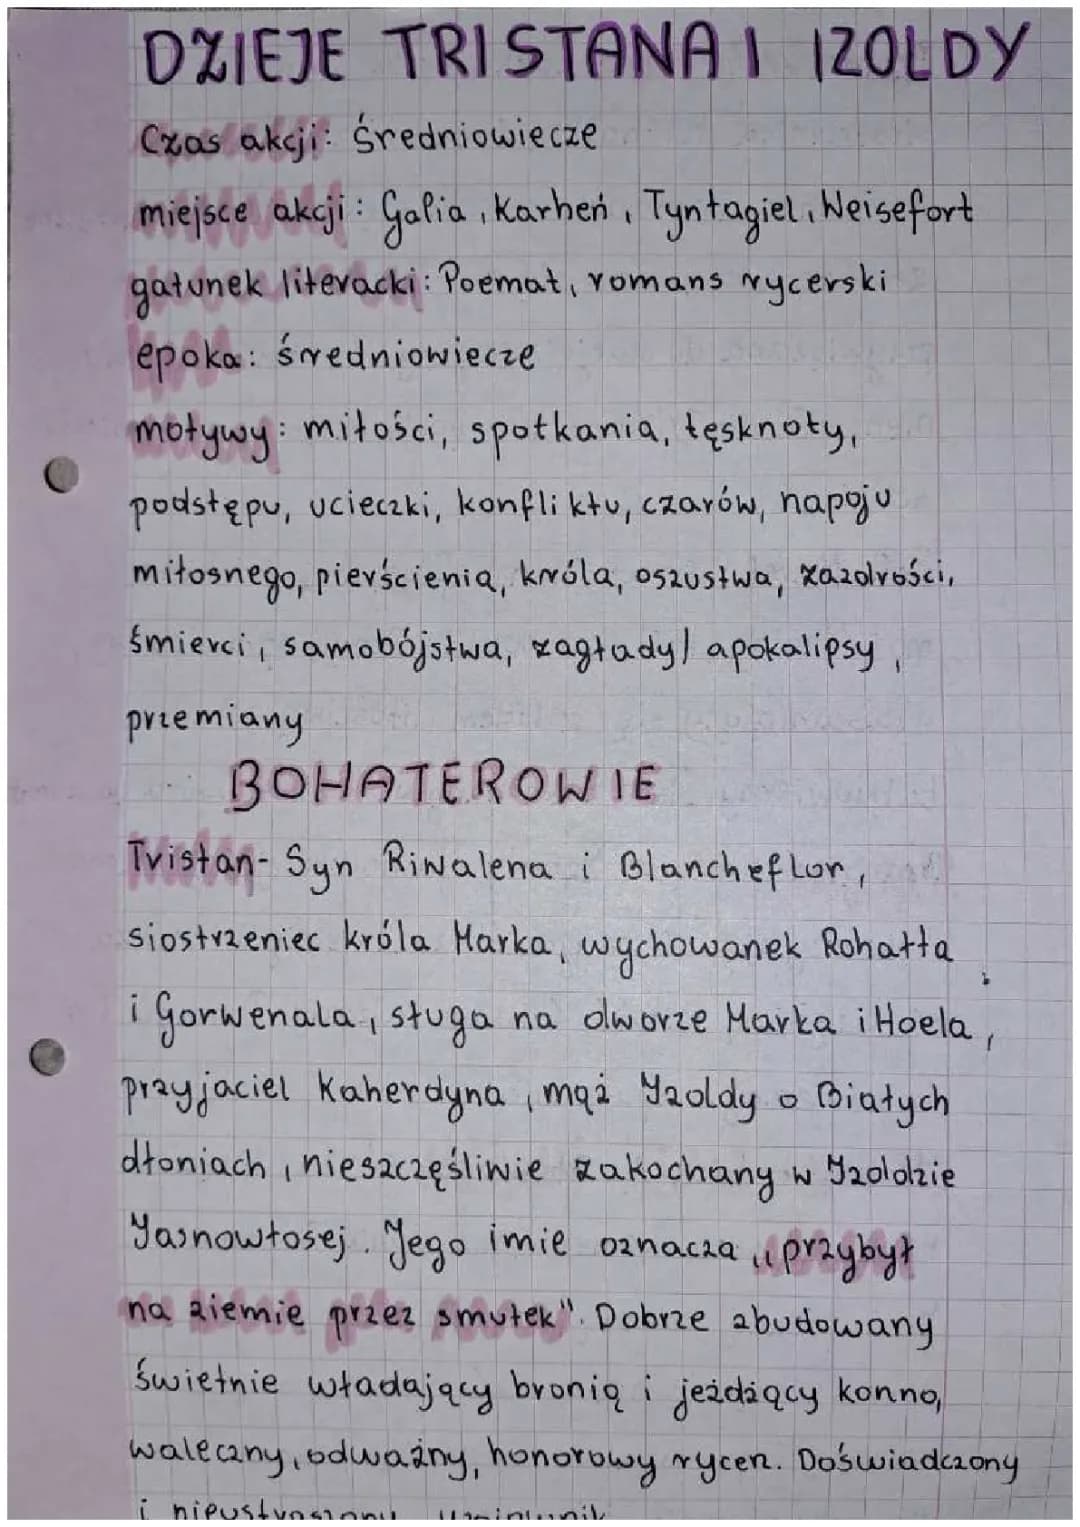 DZIEJE TRISTANA I IZOLDY
Czas akcji: średniowiecze
miejsce akcji: Galia, Karheń, Tyntagiel, Weisefort
gatunek literacki: Poemat, romans rycerski
epoka: średniowiecze
motywy: miłości, spotkania, tęsknoty,
podstępu, ucieczki, konfliktu, czarów, napoju
miłosnego, pierścienia, króla, oszustwa, zazdrości,
śmierci, samobójstwa, zagłady/ apokalipsy,
przemiany
BOHATEROWIE
Tristan- Syn Riwalena i Blancheflor,
siostrzeniec króla Marka, wychowanek Rohałta
i Gorwenala, sługa na dworze Marka i Hoela,
przyjaciel Kaherdyna, mąż Izoldy o Białych
dłoniach, nieszczęśliwie zakochany w Izoldzie
Jasnowłosej. Jego imie oznacza „przybył
na ziemie przez smutek". Dobrze zbudowany
świetnie władający bronią i jeżdżący konno,
waleczny, odważny, honorowy rycerz. Doświadczony
i nieustraszony